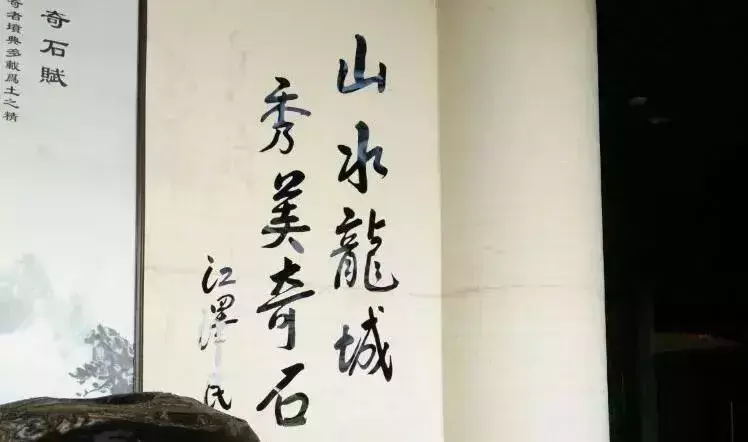 山水龍城
秀美奇石
江澤民
奇石賦
奇者墳典多載爲土之精